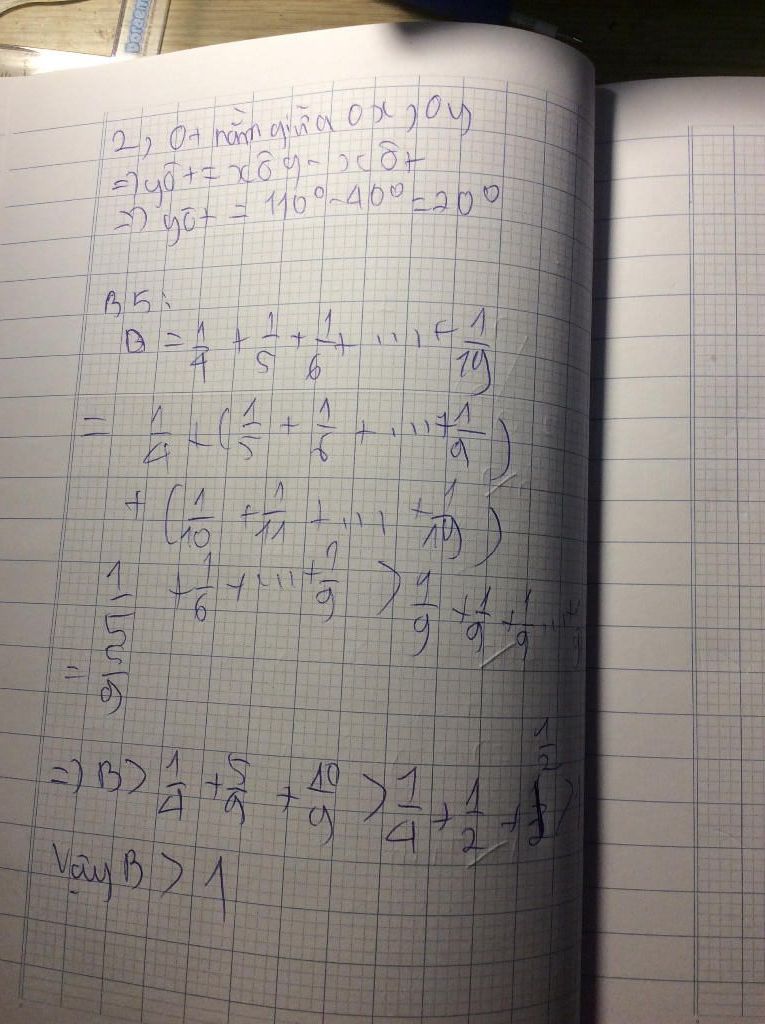 Doraem
2, Ot nằm giữa Ox, Oy
=> yÔt = xÔy - xÔt
=> yÔt = 110° - 40° = 20°
B5:
B = 1/4 + 1/5 + 1/6 + .... + 1/19
= 1/4 + (1/5 + 1/6 + .... + 1/9)
+ (1/10 + 1/11 + .... + 1/19)
1/5 + 1/6 + .... + 1/9 > 1/9 + 1/9 + 1/9 ....+
= 5/9
=> B > 1/4 + 5/9 + 10/9 > 1/4 + 1/2 + 1/2 >
Vậy B > 1